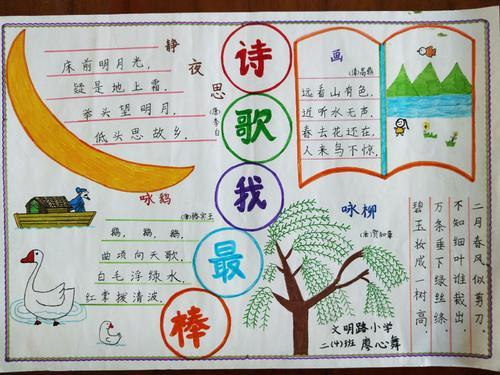 诗歌我最棒
静夜思
(唐)李白
床前明月光,
疑是地上霜。
举头望明月,
低头思故乡。
画
远看山有色,
近听水无声。
春去花还在,
人来鸟不惊。
咏鹅
(唐)骆宾王
鹅,鹅,鹅,
曲项向天歌。
白毛浮绿水,
红掌拨清波。
咏柳
(唐)贺知章
碧玉妆成一树高,
万条垂下绿丝绦。
不知细叶谁裁出,
二月春风似剪刀。
文明路小学
二(4)班 廖心舞